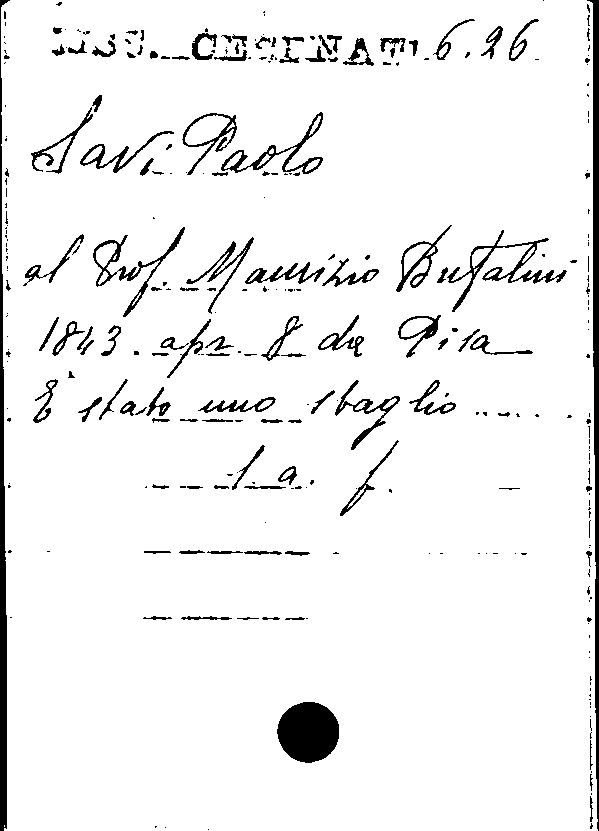 MSS. CESENATI 6.26
Savi Paolo
al Prof. Maurizio Bufalini
1843. apr. 8 da Pisa
È stato uno sbaglio .....
l. a. f.